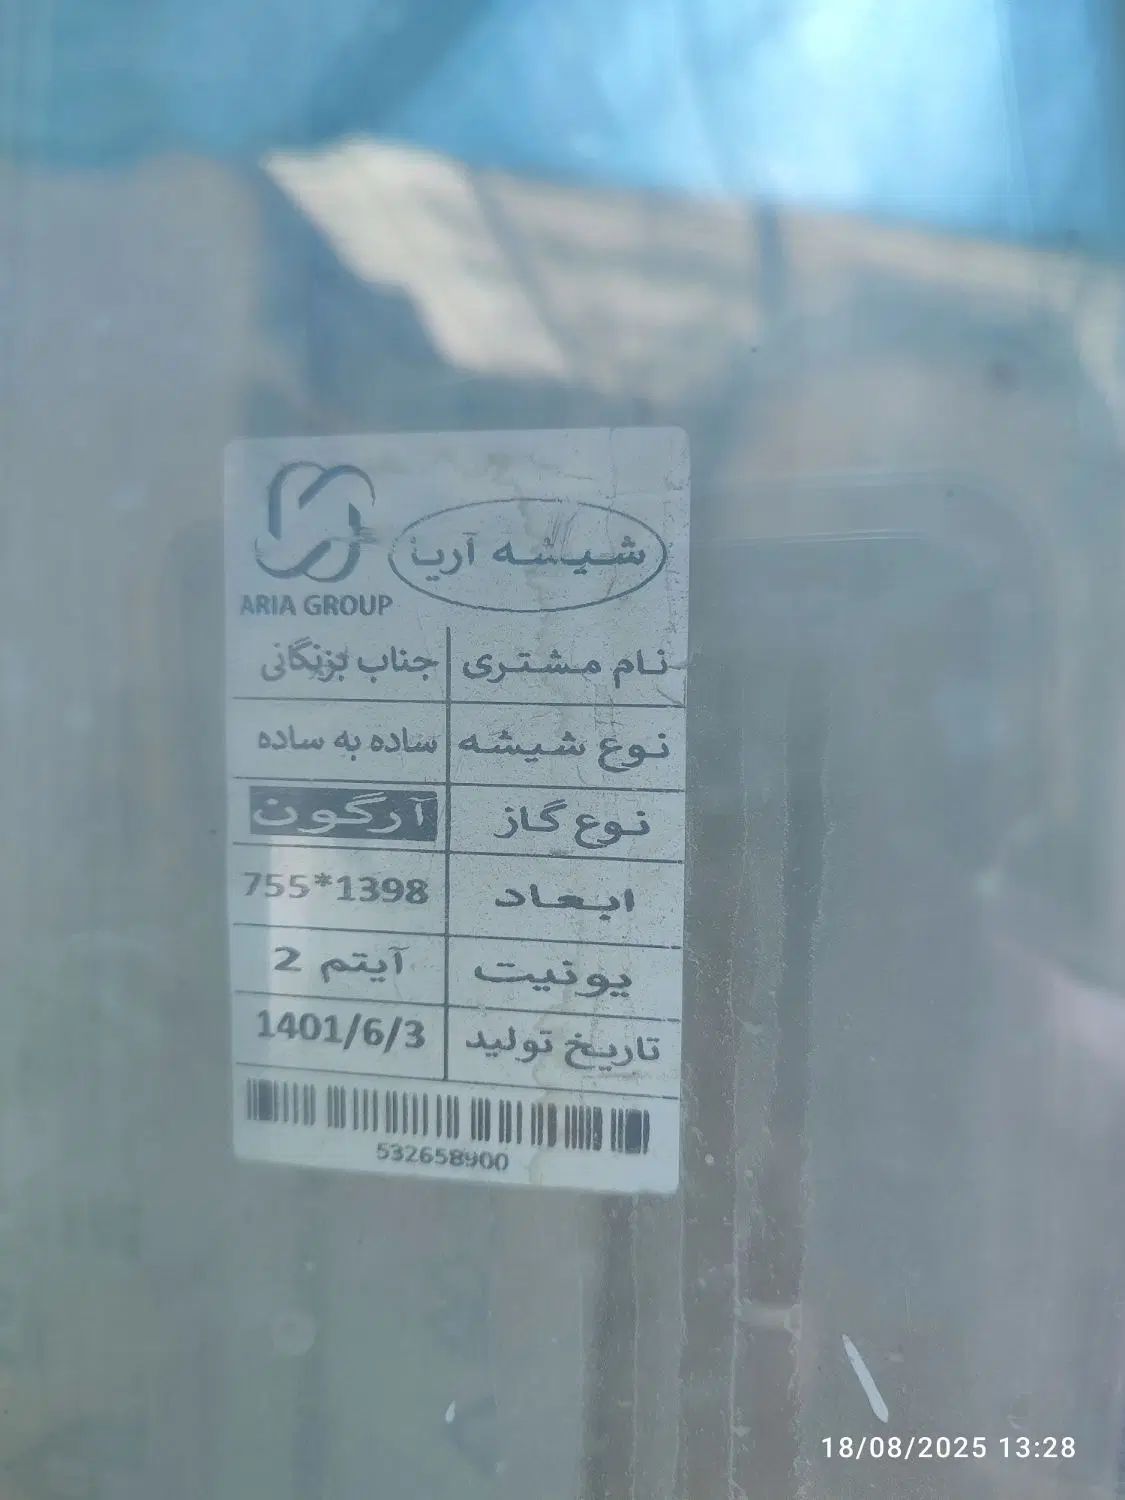 ARIA GROUP
شیشه آریا
نام مشتری جناب بزنگانی
نوع شیشه ساده به ساده
نوع گاز آرگون
ابعاد 755*1398
یونیت آیتم 2
تاریخ تولید 1401/6/3
532658900
18/08/2025 13:28